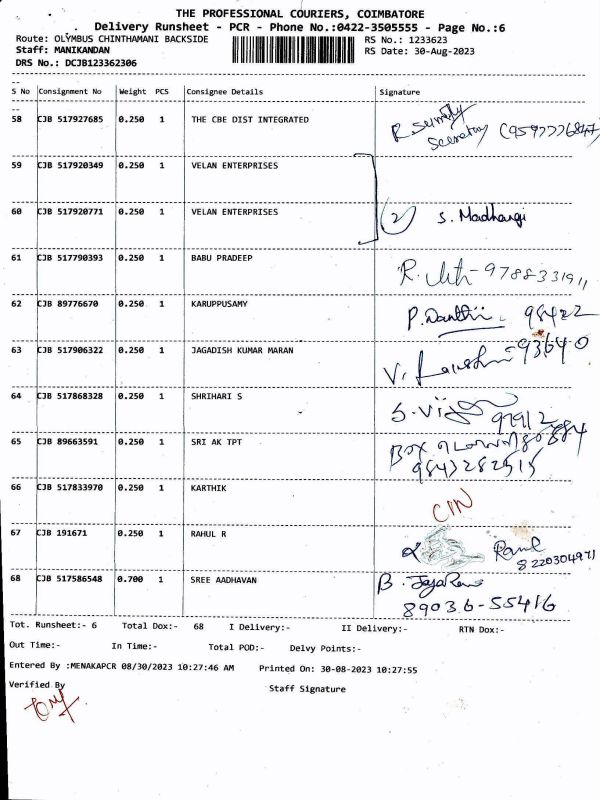 THE PROFESSIONAL COURIERS, COIMBATORE
Delivery Runsheet - PCR - Phone No.:0422-3505555 - Page No.:6
Route: OLYMBUS CHINTHAMANI BACKSIDE RS No.: 1233623
Staff: MANIKANDAN RS Date: 30-Aug-2023
DRS No.: DCJB123362306
S No Consignment No Weight PCS Consignee Details Signature
58 CJB 517927685 0.250 1 THE CBE DIST INTEGRATED
59 CJB 517920349 0.250 1 VELAN ENTERPRISES
60 CJB 517920771 0.250 1 VELAN ENTERPRISES 2 S. Madhangi
61 CJB 517790393 0.250 1 BABU PRADEEP R. 9788331911
62 CJB 89776670 0.250 1 KARUPPUSAMY P. 98422
63 CJB 517906322 0.250 1 JAGADISH KUMAR MARAN V. 93640
64 CJB 517868328 0.250 1 SHRIHARI S S. 97912
65 CJB 89663591 0.250 1 SRI AK TPT
66 CJB 517833970 0.250 1 KARTHIK CIN
67 CJB 191671 0.250 1 RAHUL R 8220304971
68 CJB 517586548 0.700 1 SREE AADHAVAN B. 89036-55416
Tot. Runsheet:- 6 Total Dox:- 68 I Delivery:- II Delivery:- RTN Dox:-
Out Time:- In Time:- Total POD:- Delvy Points:-
Entered By :MENAKAPCR 08/30/2023 10:27:46 AM Printed On: 30-08-2023 10:27:55
Verified By Staff Signature